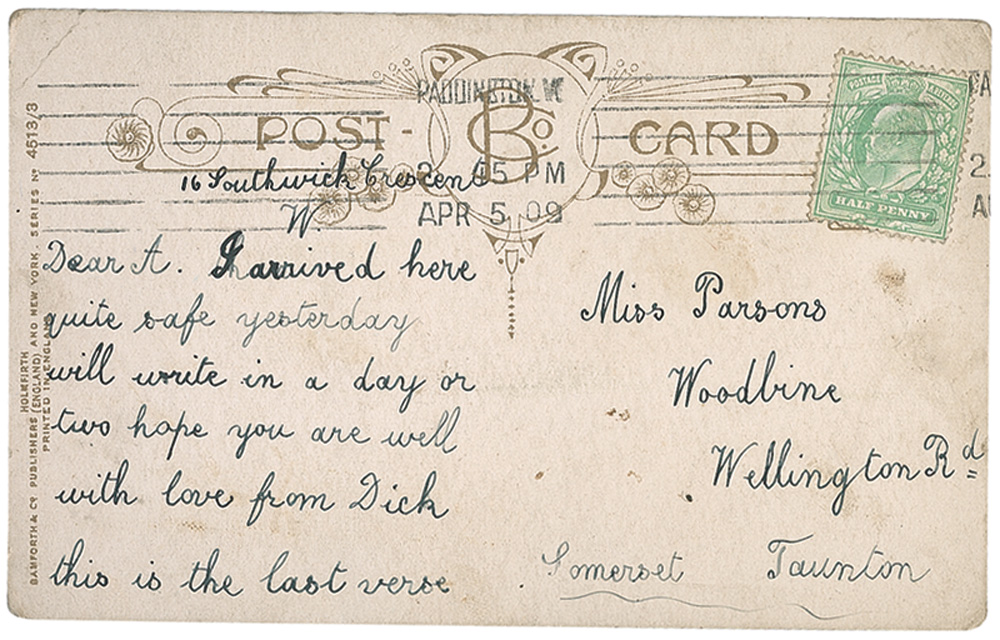 POST - CARD
B Co.
PADDINGTON. W.
2 45 PM
APR 5 09
HALF PENNY
16 Southwick Crescent
W.
Dear A. I arrived here
quite safe yesterday
will write in a day or
two hope you are well
with love from Dick
this is the last verse
Miss Parsons
Woodbine
Wellington Rd
Somerset Taunton
HOLMFIRTH
BAMFORTH & Co PUBLISHERS (ENGLAND) AND NEW YORK. SERIES No 4513/3
PRINTED IN ENGLAND